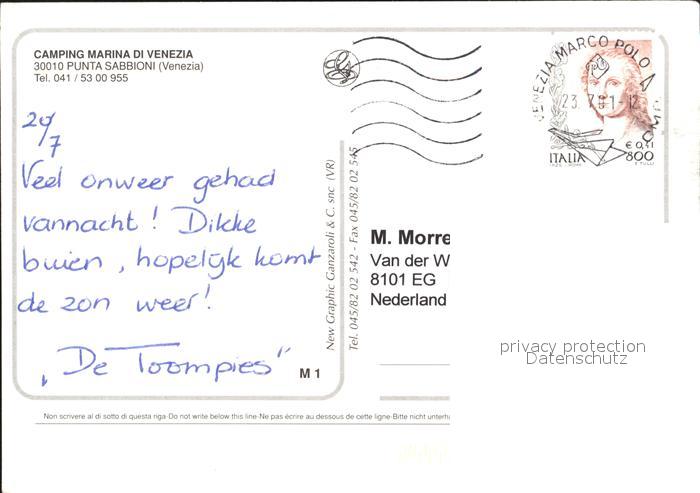 CAMPING MARINA DI VENEZIA
30010 PUNTA SABBIONI (Venezia)
Tel. 041 / 53 00 955
20/7
Veel onweer gehad
vannacht! Dikke
buien, hopelijk komt
de zon weer!
„De Toompies"
M 1
New Graphic Ganzaroli & C. snc (VR)
Tel. 045/82 02 542 - Fax 045/82 02 545
VENEZIA MARCO POLO A
23.7.01-12
ITALIA
€ 0,41
800
M. Morre
Van der W
8101 EG
Nederland
privacy protection
Datenschutz
Non scrivere al di sotto di questa riga-Do not write below this line-Ne pas écrire au dessous de cette ligne-Bitte nicht unterha